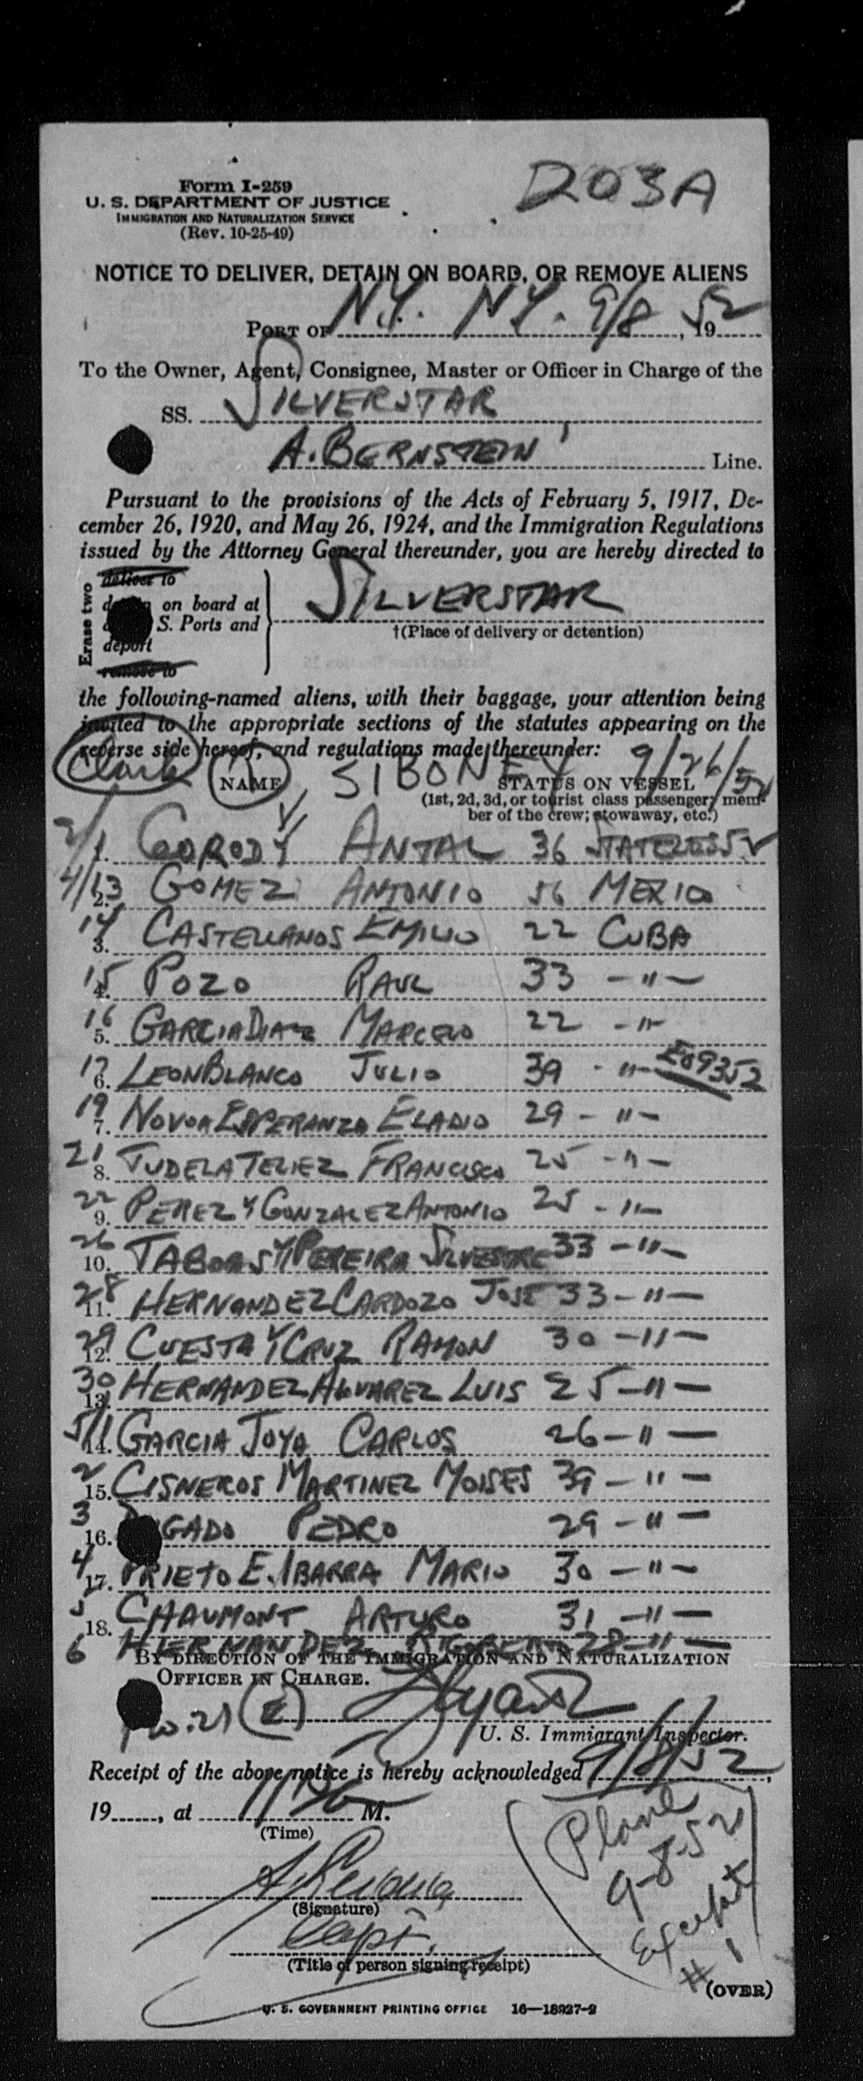 Form I-259
U. S. DEPARTMENT OF JUSTICE
IMMIGRATION AND NATURALIZATION SERVICE
(Rev. 10-25-49)
D203A
NOTICE TO DELIVER, DETAIN ON BOARD, OR REMOVE ALIENS
PORT OF N.Y. N.Y. 9/8, 1952
To the Owner, Agent, Consignee, Master or Officer in Charge of the
SS. SILVERSTAR
A. BERNSTEIN Line.
Pursuant to the provisions of the Acts of February 5, 1917, De-
cember 26, 1920, and May 26, 1924, and the Immigration Regulations
issued by the Attorney General thereunder, you are hereby directed to
Erase two
deliver to
on board at
S. Ports and
deport
remove to
SILVERSTAR
†(Place of delivery or detention)
the following-named aliens, with their baggage, your attention being
invited to the appropriate sections of the statutes appearing on the
reverse side hereof, and regulations made thereunder:
Clark 1 SIBONEY 9/26/52
NAME STATUS ON VESSEL
(1st, 2d, 3d, or tourist class passenger; mem-
ber of the crew; stowaway, etc.)
2/1 1. GORODY ANTAL 36 STATELESS
4/13 2. GOMEZ ANTONIO 56 MEXICO
14 3. CASTELLANOS EMILIO 22 CUBA
15 4. POZO RAUL 33 -"-
16 5. GARCIA DIAZ MARCELO 22 -"-
17 6. LEON BLANCO JULIO 39 -"-
19 7. NOVOA ESPERANZA ELADIO 29 -"-
21 8. TUDELA TELIEZ FRANCISCO 25 -"-
22 9. PEREZ Y GONZALEZ ANTONIO 25 -"-
26 10. TABOAS Y PEREIRA SILVESTRE 33 -"-
28 11. HERNANDEZ CARDOZO JOSE 33 -"-
29 12. CUESTA Y CRUZ RAMON 30 -"-
30 13. HERNANDEZ ALVAREZ LUIS 25 -"-
5/1 14. GARCIA JOYA CARLOS 26 -"-
2 15. CISNEROS MARTINEZ MOISES 39 -"-
3 16. GADO PEDRO 29 -"-
4 17. PRIETO E. IBARRA MARIO 30 -"-
5 18. CHAUMONT ARTURO 31 -"-
6 HERNANDEZ RIGOBERTO 28 -"-
BY DIRECTION OF THE IMMIGRATION AND NATURALIZATION
OFFICER IN CHARGE.
U. S. Immigrant Inspector.
Receipt of the above notice is hereby acknowledged 9/8/52,
19......, at M.
(Time)
(Signature)
Capt.
(Title of person signing receipt)
Plane
9-8-52
Except
# 1
(OVER)
U. S. GOVERNMENT PRINTING OFFICE 16—18927-2